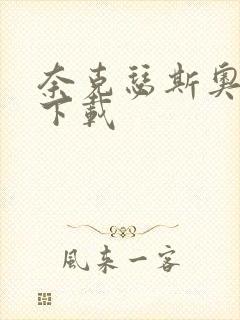 奈克瑟斯奥
下载
風来一客